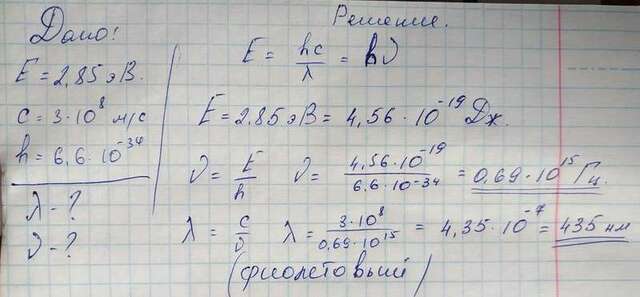 Дано:
E = 2,85 эВ.
c = 3·10⁸ м/с
h = 6,6·10⁻³⁴
λ - ?
ν - ?
Решение.
E = hc/λ = hν
E = 2,85 эВ = 4,56·10⁻¹⁹ Дж.
ν = E/h ν = 4,56·10⁻¹⁹/6,6·10⁻³⁴ = 0,69·10¹⁵ Гц.
λ = c/ν λ = 3·10⁸/0,69·10¹⁵ = 4,35·10⁻⁷ = 435 нм
(фиолетовый)